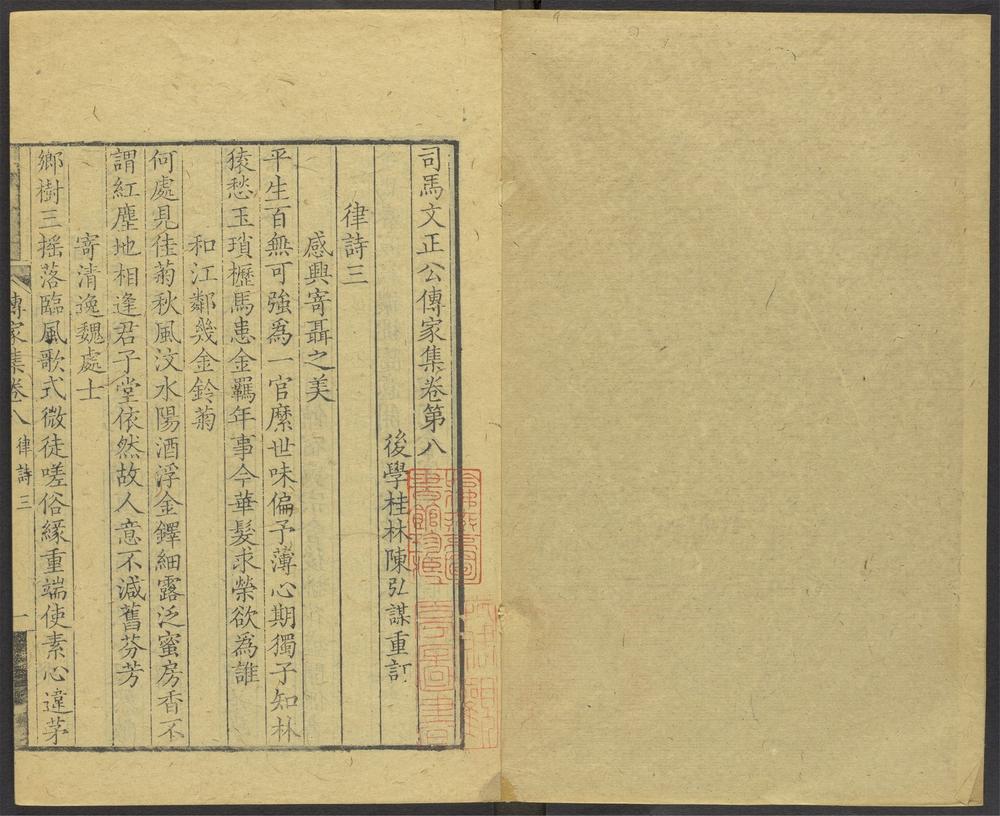 司馬文正公傳家集卷第八
後學桂林陳弘謀重訂
律詩三
感興寄聶之美
平生百無可強爲一官縻世味偏予薄心期獨子知林
猿愁玉瑣櫪馬恚金羈年事今華髮求榮欲爲誰
和江鄰幾金鈴菊
何處見佳菊秋風汶水陽酒浮金鐸細露泛蜜房香不
謂紅塵地相逢君子堂依然故人意不減舊芬芳
寄清逸魏處士
鄉樹三摇落臨風歌式微徒嗟俗緣重端使素心違茅
傳家集卷八
律詩三
一